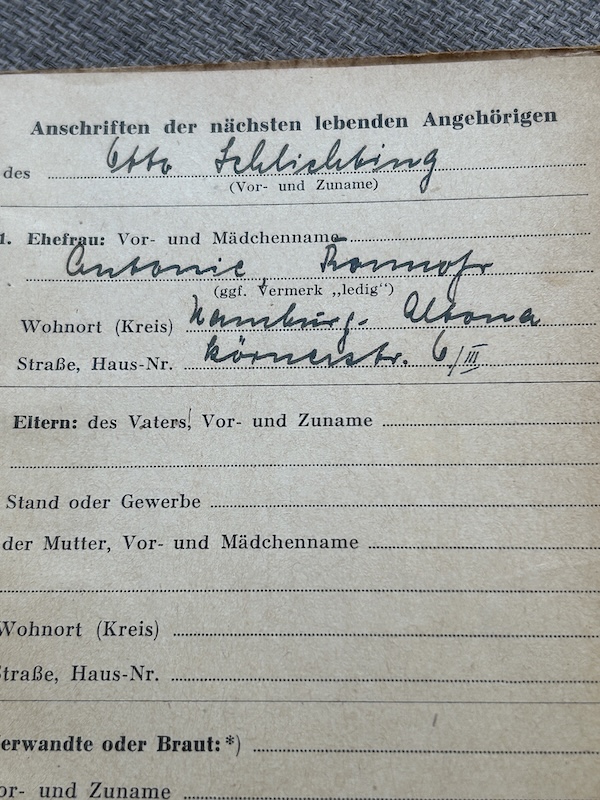 Anschriften der nächsten lebenden Angehörigen
des Otto Schlichting
(Vor- und Zuname)
1. Ehefrau: Vor- und Mädchenname
Antonie
(ggf. Vermerk „ledig“)
Wohnort (Kreis) Hamburg-Altona
Straße, Haus-Nr. Körnerstr. 6/III
Eltern: des Vaters, Vor- und Zuname
Stand oder Gewerbe
der Mutter, Vor- und Mädchenname
Wohnort (Kreis)
Straße, Haus-Nr.
erwandte oder Braut:*)
or- und Zuname